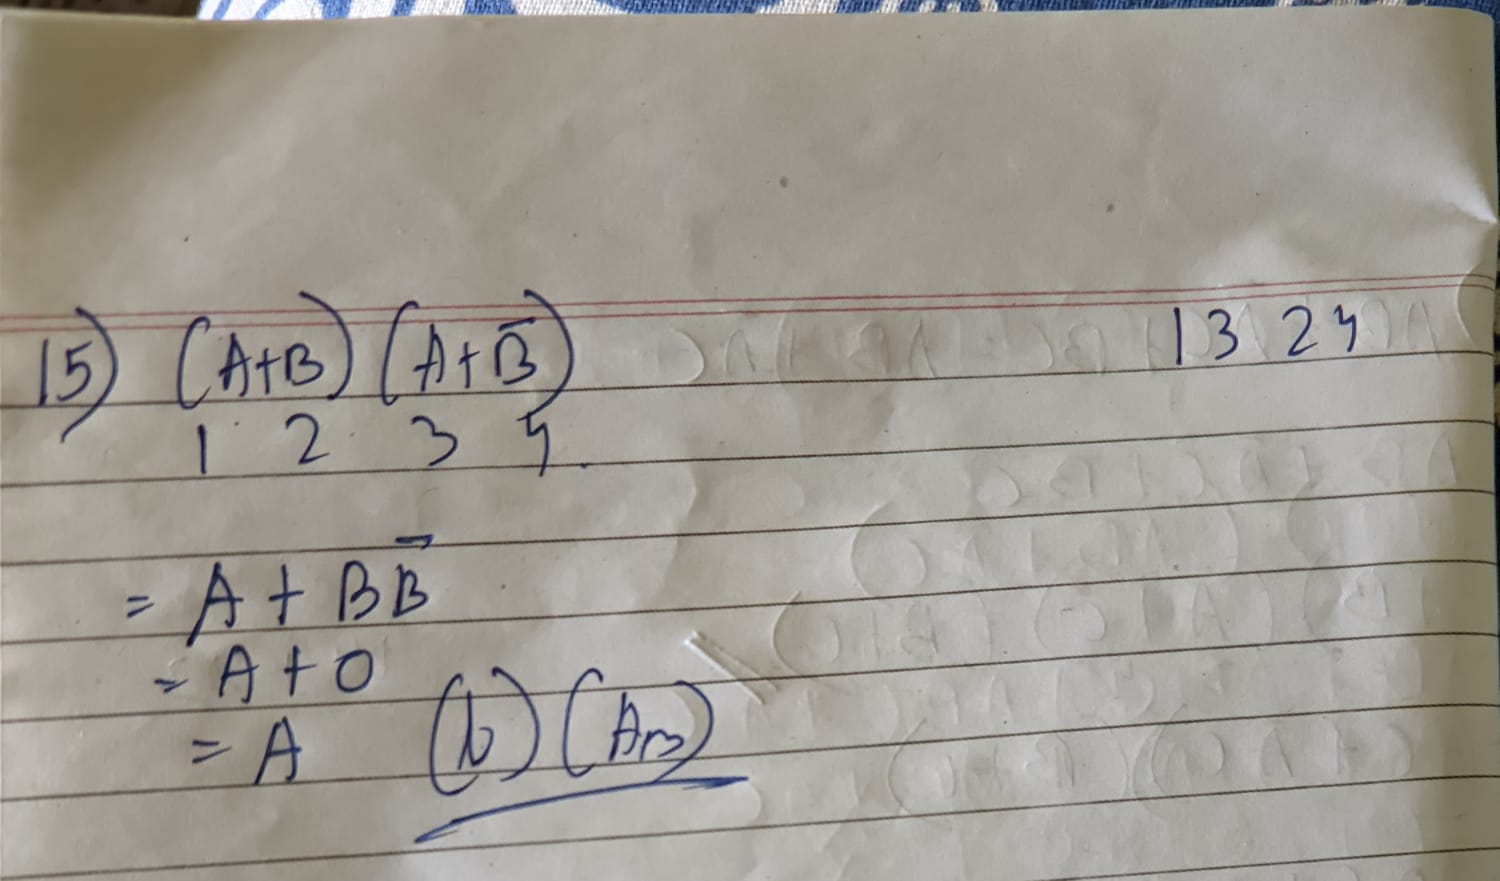 15) (A+B) (A+B̅) 1 3 2 4
1 2 3 4.
= A + BB̅
= A + 0
= A (b) (Ans)